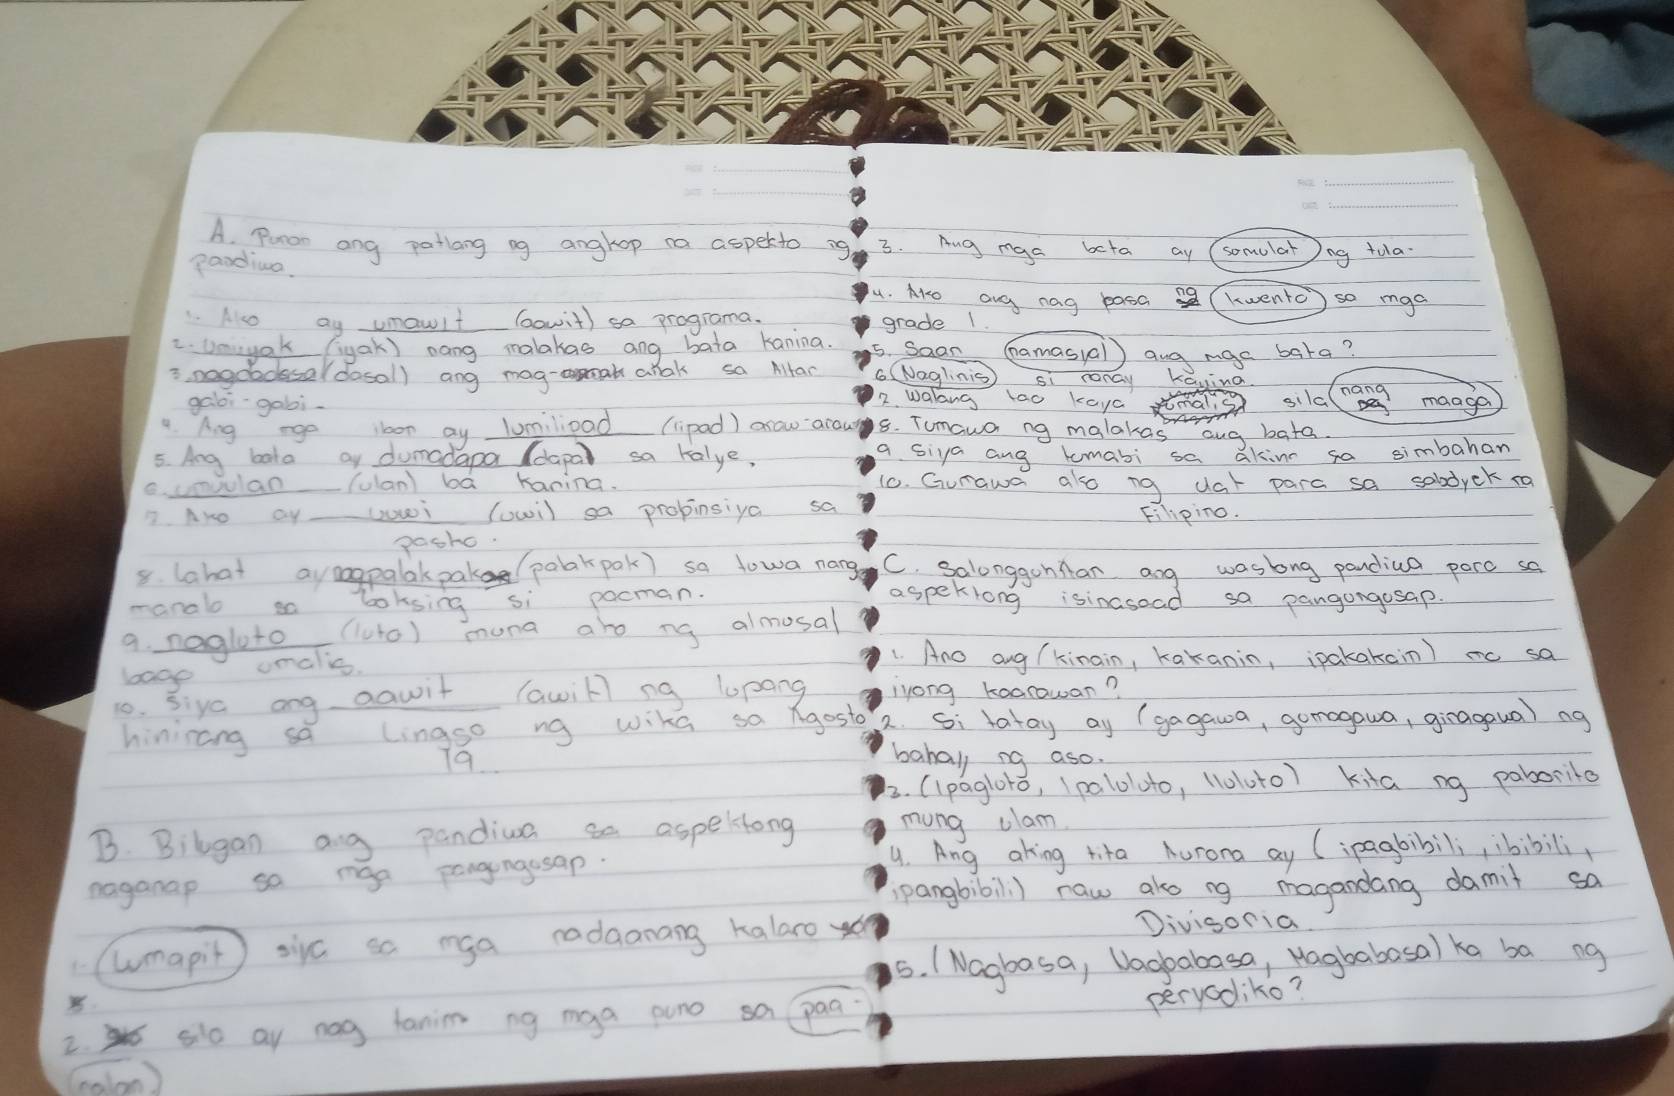 A. Punan ang patlang ng angkop na aspekto ng
pandiwa.
1. Ako ay umawit (aawit) sa programa.
2. Umiiyak (iyak) nang malakas ang bata kanina.
3. nagdadasal (dasal) ang mag- anak sa Altar
gabi-gabi.
4. Ang mga ibon ay lumilipad (lipad) araw-araw
5. Ang bata ay dumadapa (dapa) sa kalye.
6. umuulan (ulan) ba kanina.
7. Ako ay uuwi (uwi) sa probinsiya sa
pasko.
8. Lahat ay palakpak (palakpak) sa tuwa nang
manalo sa boksing si pacman.
9. nagluto (luto) muna ako ng almusal
bago umalis.
10. Siya ang aawit (awit) ng lupang
hinirang sa Linggo ng wika sa Agosto
19
B. Bilugan ang pandiwa sa aspektong
naganap sa mga pangungusap.
1. Lumapit siya sa mga nadaanang kalaro
2. sila ay nag tanim ng mga puno sa paa-
ralan
3. Ang mga bata ay sumulat ng tula.
4. Ako ang nag basa ng kwento sa mga
grade 1.
5. Saan namasyal ang mga bata?
6. Naglinis si nanay kanina
7. Walang tao kaya umalis sila nang maaga
8. Tumawa ng malakas ang bata.
9 Siya ang tumabi sa akin sa simbahan
10. Gumawa ako ng ular para sa sabdyck sa
Filipino.
C. Salungguhitan ang wastong pandiwa para sa
aspektong isinasaad sa pangungusap.
1. Ano ang (kinain, kakanin, ipakakain) mo sa
iyong kaarawan?
2. Si tatay ay (gagawa, gumagawa, ginagawa) ng
bahay ng aso.
3. (Ipagluto, Ipaluluto, Iluluto) kita ng paborito
mung ulam
4. Ang aking tita Aurora ay (ipagbibili, ibibili,
ipangbibili) raw ako ng magandang damit sa
Divisoria
5. (Nagbasa, Nagbabasa, Magbabasa) ka ba ng
peryodiko?